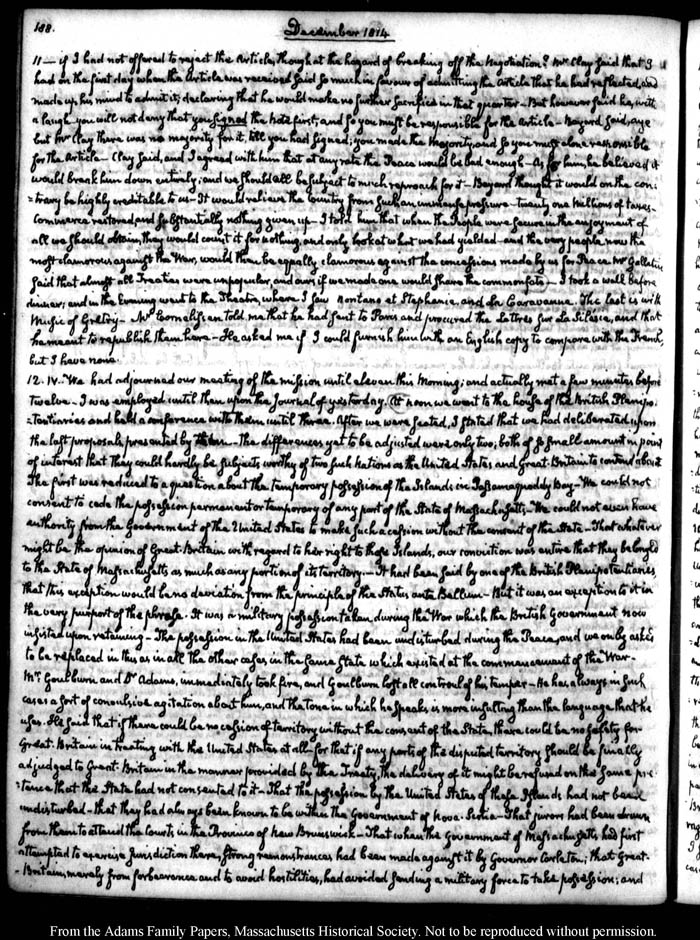 188.
December 1814
11 — if I had not offered to reject the Article, though at the hazard of breaking off the Negotiation? Mr. Clay said that I
had on the first day when the Article was received said so much in favour of admitting the Article that he had reflected, and
made up his mind to admit it; declaring that he would make no further Sacrifice in that quarter — But however said he, with
a laugh you will not deny that you signed the Note first, and so you must be responsible for the Article — Bayard said, aye
but Mr. Clay there was no majority for it, till you had signed; you made the Majority, and so you must alone be responsible
for the Article — Clay said, and I agreed with him that at any rate the Peace would be bad enough — As for him, he believed it
would break him down entirely, and we should all be subject to much reproach for it — Bayard thought it would on the con:
:trary be highly creditable to us — It would relieve the Country from such an immense pressure — twenty one Millions of taxes —
Commerce restored, and substantially nothing given up — I told him that when the People were secure in the enjoyment of
all we should obtain, they would count it for nothing, and only look at what we had yielded — and the very people now the
most clamorous against the War, would then be equally clamorous against the concessions made by us for Peace. Mr. Gallatin
said that almost all Treaties were unpopular, and ours if we made one would share the common fate — I took a walk before
dinner; and in the Evening went to the Theatre, where I saw Montano et Stephanie, and La Caravanne. The last is with
Music of Grétry — Mr. Cornelissen told me that he had sent to Paris and procured the Lettres sur la Silesie, and that
he meant to republish them here — He asked me if I could furnish him with an English copy to compare with the French,
but I have none.
12. IV. We had adjourned our meeting of the mission until eleven this Morning; and actually met a few minutes before
twelve. I was employed until then upon the Journal of yesterday. At noon we went to the house of the British Plenipo:
:tentiaries and held a conference with them until three. After we were seated, I stated that we had deliberated upon
the last proposals presented by them — The differences yet to be adjusted were only two; both of so small amount in point
of interest that they could hardly be subjects worthy of two such Nations as the United States and Great-Britain to contend about
The first was reduced to a question about the temporary possession of the Islands in Passamaquoddy Bay — We could not
consent to cede the possession permanent or temporary of any part of the State of Massachusetts — We could not even have
authority from the Government of the United States to make such a cession without the consent of the State — That whatever
might be the opinion of Great-Britain with regard to her right to those Islands, our conviction was entire that they belonged
to the State of Massachusetts as much as any portion of its territory — It had been said by one of the British Plenipotentiaries,
that this exception would be no deviation from the principle of the Status ante Bellum — But it was an exception to it in
the very purport of the phrase. It was a military possession taken during the War which the British Government now
insisted upon retaining — The possession in the United States had been undisturbed during the Peace, and we only asked
to be replaced in this as in all the other cases in the same State which existed at the commencement of the War —
Mr. Goulburn and Dr. Adams, immediately took fire, and Goulburn lost all control of his temper — He has always in such
cases a sort of convulsive agitation about him, and the tone in which he speaks is more insulting than the language that he
uses. He said that if there could be no cession of territory without the consent of the State, there could be no safety for
Great-Britain in treating with the United States at all — for that if any part of the disputed territory should be finally
adjudged to Great-Britain in the manner provided by the Treaty, the delivery of it might be refused on the same pre:
:tence that the State had not consented to it — That the possession by the United States of these Islands had not been
undisturbed — that they had always been known to be within the Government of Nova-Scotia — That jurors had been drawn
from them to attend the Courts in the Province of New Brunswick — That when the Government of Massachusetts had first
attempted to exercise Jurisdiction there, strong remonstrances had been made against it by Governor Carleton; that Great-
-Britain, merely from forbearance and to avoid hostilities, had avoided sending a military force to take possession; and
From the Adams Family Papers, Massachusetts Historical Society. Not to be reproduced without permission.